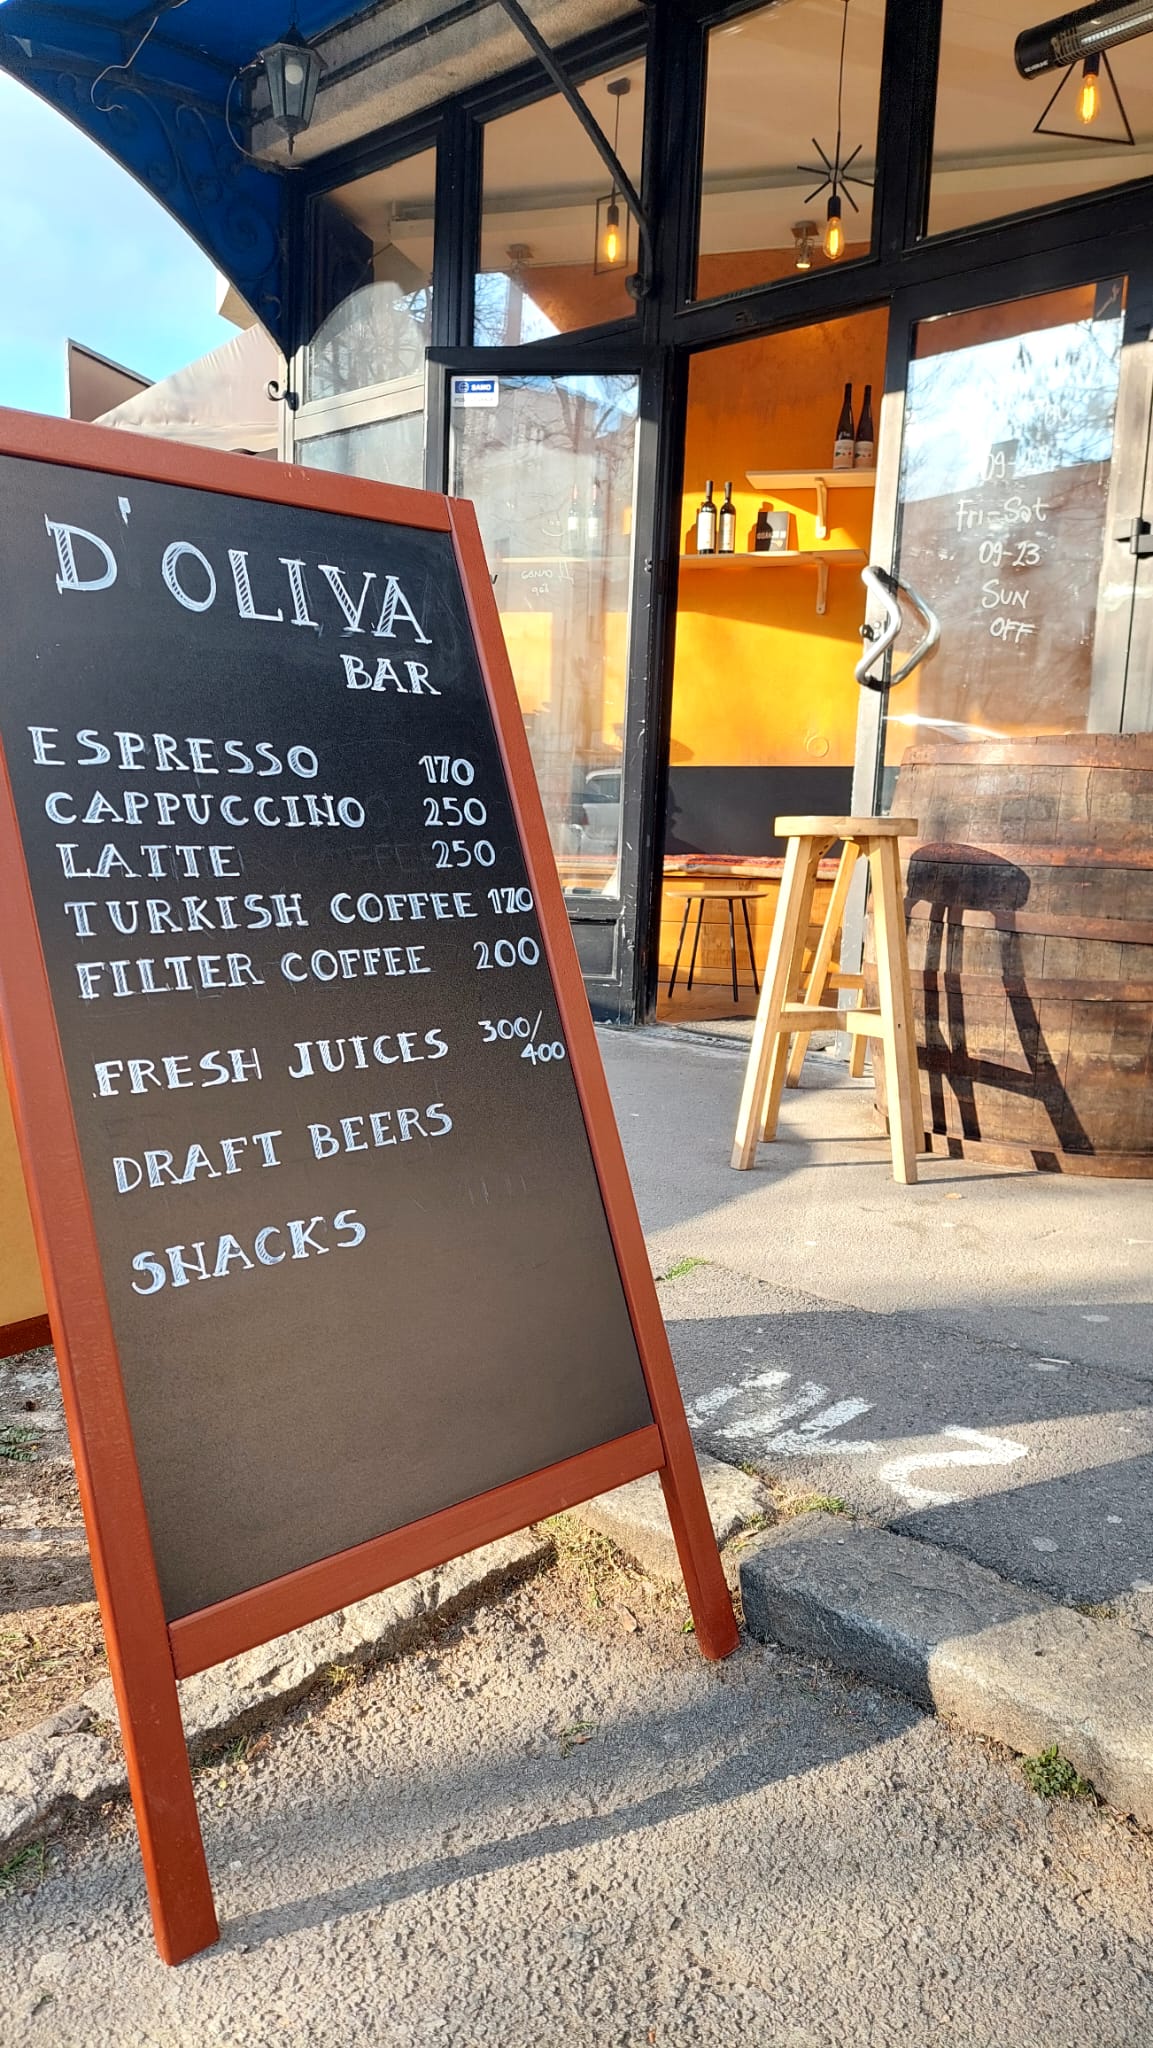 D'OLIVA
BAR
ESPRESSO 170
CAPPUCCINO 250
LATTE 250
TURKISH COFFEE 170
FILTER COFFEE 200
FRESH JUICES 300/
400
DRAFT BEERS
SNACKS
Fri-Sat
09-23
SUN
OFF